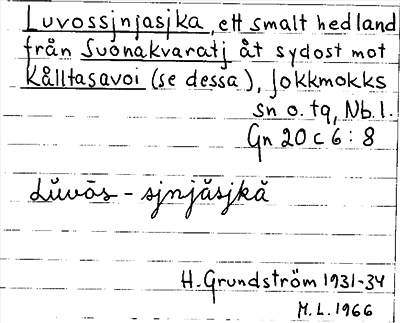 Luvossjnjasjka, ett smalt hedland
från Suonakvaratj åt sydost mot
Kålltasavoi (se dessa), Jokkmokks
sn o. tg, Nb.l.
Gn 20 C 6 : 8
Lŭvŏs - sjnjăsjkă
H. Grundström 1931-34
M. L. 1966